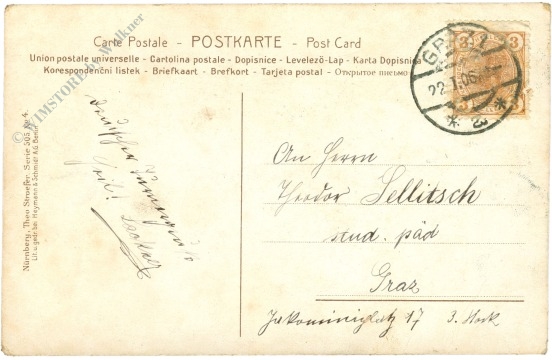 Carte Postale - POSTKARTE - Post Card
Union postale universelle - Cartolina postale - Dopisnice - Levelező-Lap - Karta Dopisnica
Korespondenční listek - Briefkaart - Brefkort - Tarjeta postal - Открытое письмо
© WIMSTORE by Walkner
Nürnberg, Theo Stroefer. Serie 505, № 4.
Lit. u. gedr. bei Heymann & Schmidt A.G. Berlin
Deutscher
Heil!
GRAZ 1
22.1.06
* 3 *
3
3
An Herrn
Theodor Sellitsch
stud. päd
Graz
Jakominiplatz 17 3. Stock